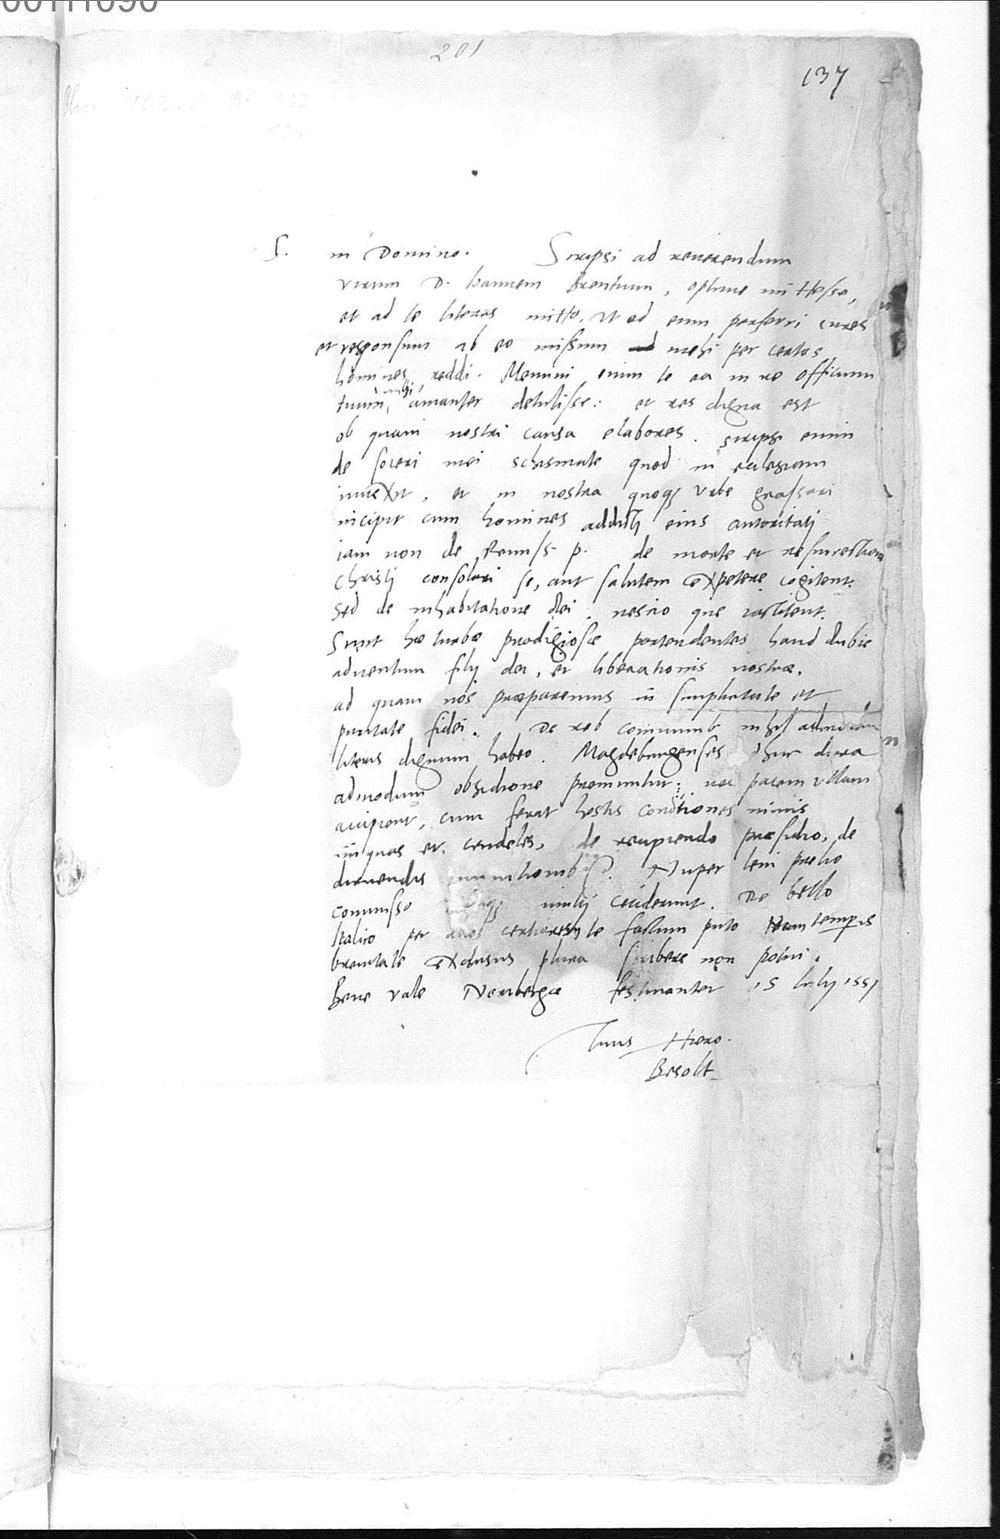 00111090
201
137
S. in Domino. Scripsi ad reverendum
virum D. Ioannem Brentium, optime mi Hesse,
et ad te literas mitto, ut ad eum perferri cures
et responsum ab eo missum mihi per certos
homines reddi. Memini enim te ea in re officium
tuum mihi amanter detulisse: et res digna est
ob quam nostri causa elabores. scripsi enim
de soceri mei schismate quod in ecclesiam
invexit, et in nostra quoq urbe grassari
incipit cum homines addicti eius autoritati
iam non de Remiss. p. de morte et resurrectione
Christi consolari se, aut salutem expetere cogitent.
Sed de inhabitatione dei nescio que iactitent.
Sunt hæ turbæ prodigiosæ portendentes haud dubie
adventum filij dei, et liberationis nostræ.
ad quam nos præparemus in simplicitate et
puritate fidei. De reb communib nihil admodum
literis dignum habeo. Magdeburgenses dura
admodum obsidione premuntur: nec pacem ullam
accipient, cum ferat hostis conditiones nimis
iniquas et crudeles, de recipiendo præsidio, de
Nuper leni prelio
commisso ceciderunt. De bello
Italico per factum puto temporis
brevitate exclusus plura scribere non potui.
Bene vale Noribergæ festinanter 15 Iulij 1551
Tuus Hiero.
Besolt